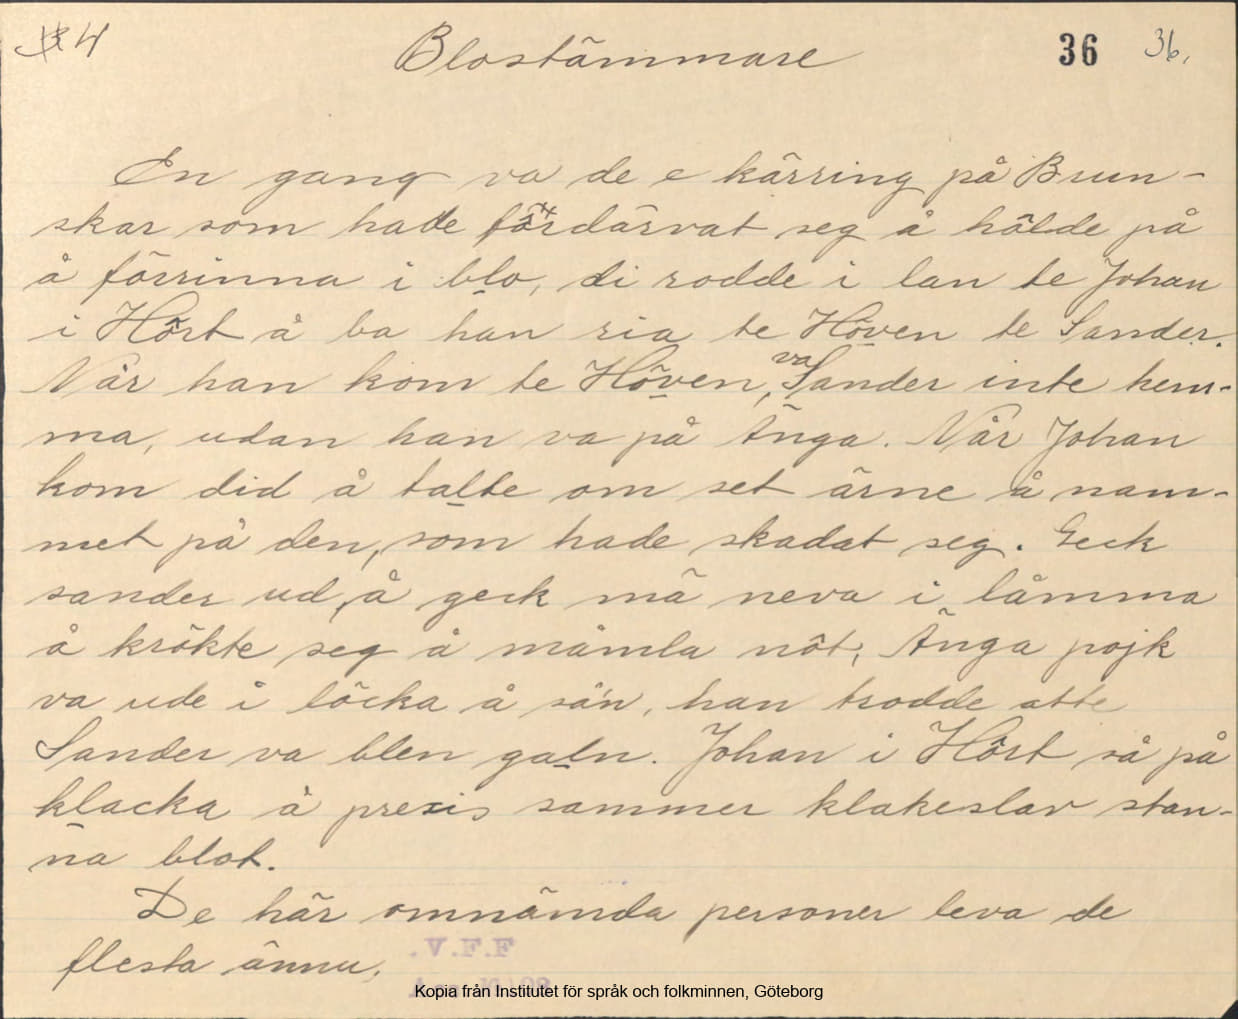 4 Blostämmare 36 36.
En gang va de e kärring på Brun-
skar som hade fördärvat seg å hölde på
å förrinna i blo, di rodde i lan te Johan
i Hört å ba han ria te Höven te Sander.
När han kom te Höven, va Sander inte hem-
ma, udan han va på Änga. När Johan
kom did å talte om set ärne å nam-
met på den, som hade skadat seg. Geck
sander ud, å geck mä neva i låmma
å krökte seg å måmla nöt, Änga pojk
va ude i löcka å sån, han trodde atte
Sander va blen galn. Johan i Hört så på
klacka å prexis sammer klakeslav stan-
na blot.
De här omnämda personer leva de
flesta ännu.
V.F.F
Kopia från Institutet för språk och folkminnen, Göteborg